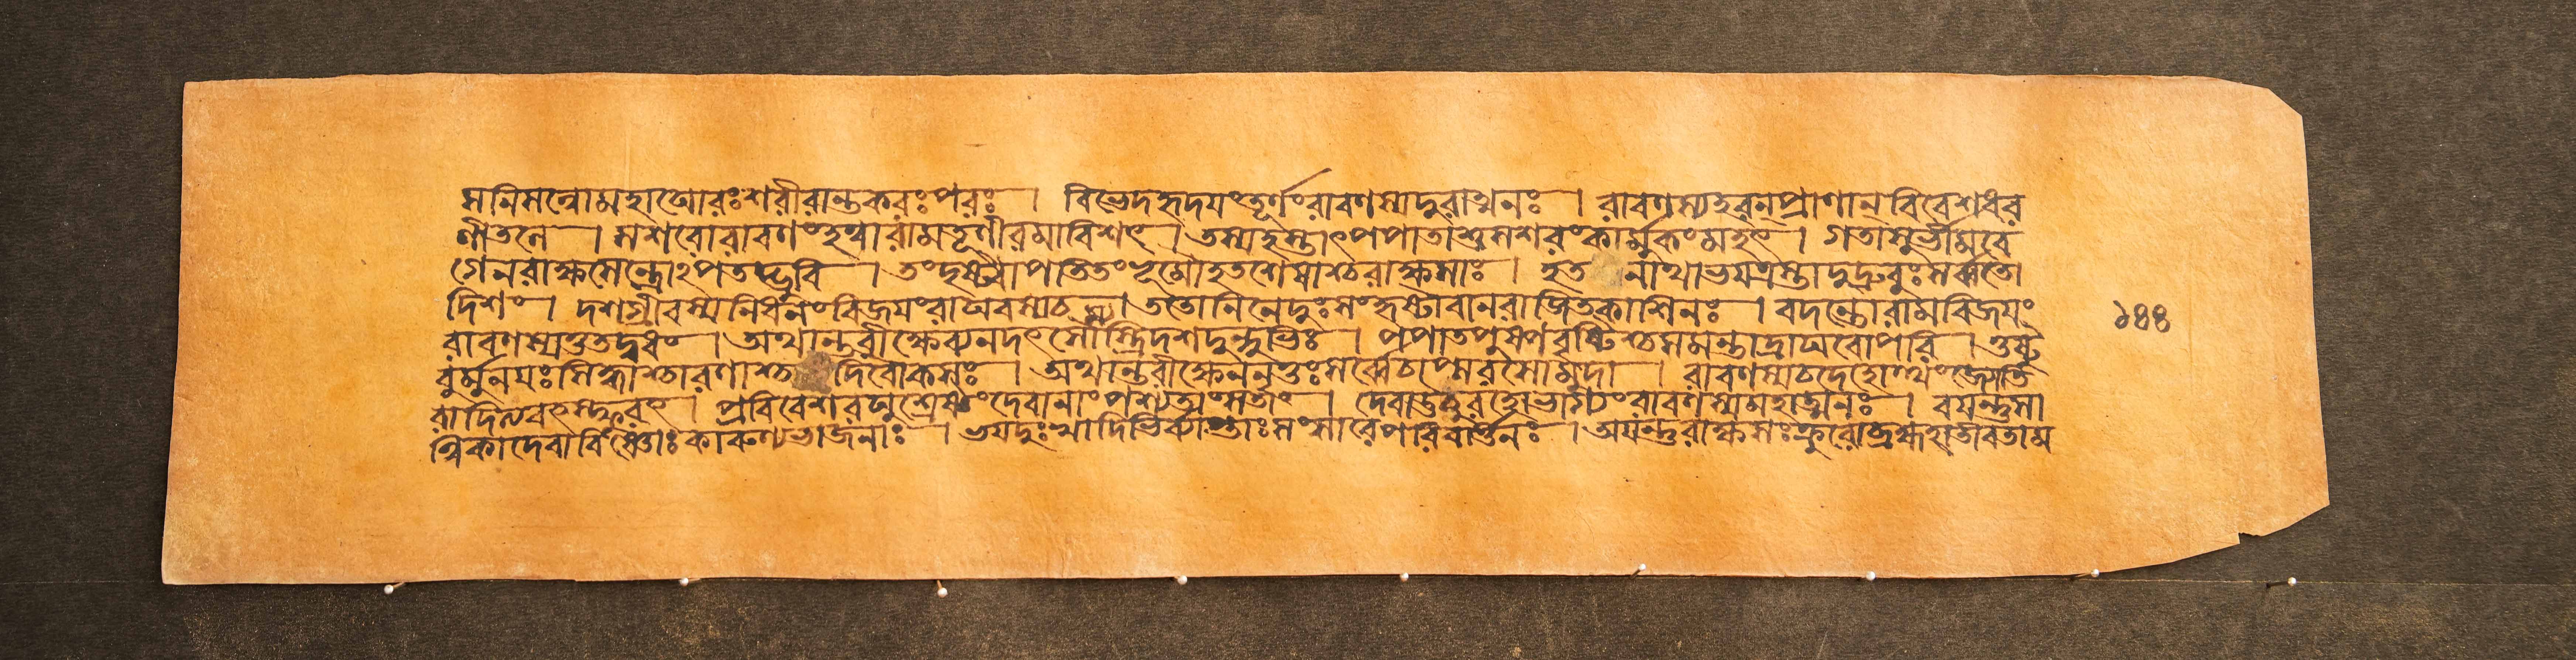 সনিমগ্নোমহাঘোরঃশরীরান্তকরঃপরঃ । বিভেদহৃদযংতূর্ণংরাবণস্যদুরাত্মনঃ । রাবণস্যহরন্প্রাণান্বিবেশধর
ণীতলে । সশরোরাবণংহত্বারামতূণীরমাবিশৎ । তস্যহস্তাৎপপাতাশুসশরংকার্মুকংমহৎ । গতাসুর্ভ্রমিবে
গেনরাক্ষসেন্দ্রোঽপতদ্ভুবি । তংদৃষ্ট্বাপতিতংভূমৌহতশেষাশ্চরাক্ষসাঃ । হতনাথাভযত্রস্তাদুদ্রুবুঃসর্ব্বতো
দিশং । দশগ্রীবস্যনিধনংবিজযংরাঘবস্যচ । ততোবিনেদুঃসংহৃষ্টাবানরাজিতকাশিনঃ । বদন্তোরামবিজযং ১৪৪
রাবণস্যতুতদ্বধং । অথান্তরীক্ষেব্যনদৎসৌম্যস্ত্রিদশদুন্দুভিঃ । পপাতপুষ্পবৃষ্টিশ্চসমন্তাদ্রাঘবোপরি । তুষ্টু
বুর্মুনযঃসিদ্ধাশ্চারণাশ্চদিবৌকসঃ । অথান্তরীক্ষেননৃতুঃসর্ব্বেচাপ্সরসোমুদা । রাবণস্যচদেহোত্থংজ্যোতি
রাদিত্যবৎস্ফুরৎ । প্রবিবেশরঘুশ্রেষ্ঠংদেবানাংপশ্যতাংসতাং । দেবাঊচুরহোভাগ্যংরাবণস্যমহাত্মনঃ । বযন্তুসা
ত্ত্বিকাদেবাবিষ্ণোঃকারুণ্যভাজনাঃ । ভযদুঃখাদিভির্ব্যাপ্তাঃসংসারেপরিবর্ত্তিনঃ । অযন্তুরাক্ষসঃক্রূরোব্রহ্মহাতীবতাম